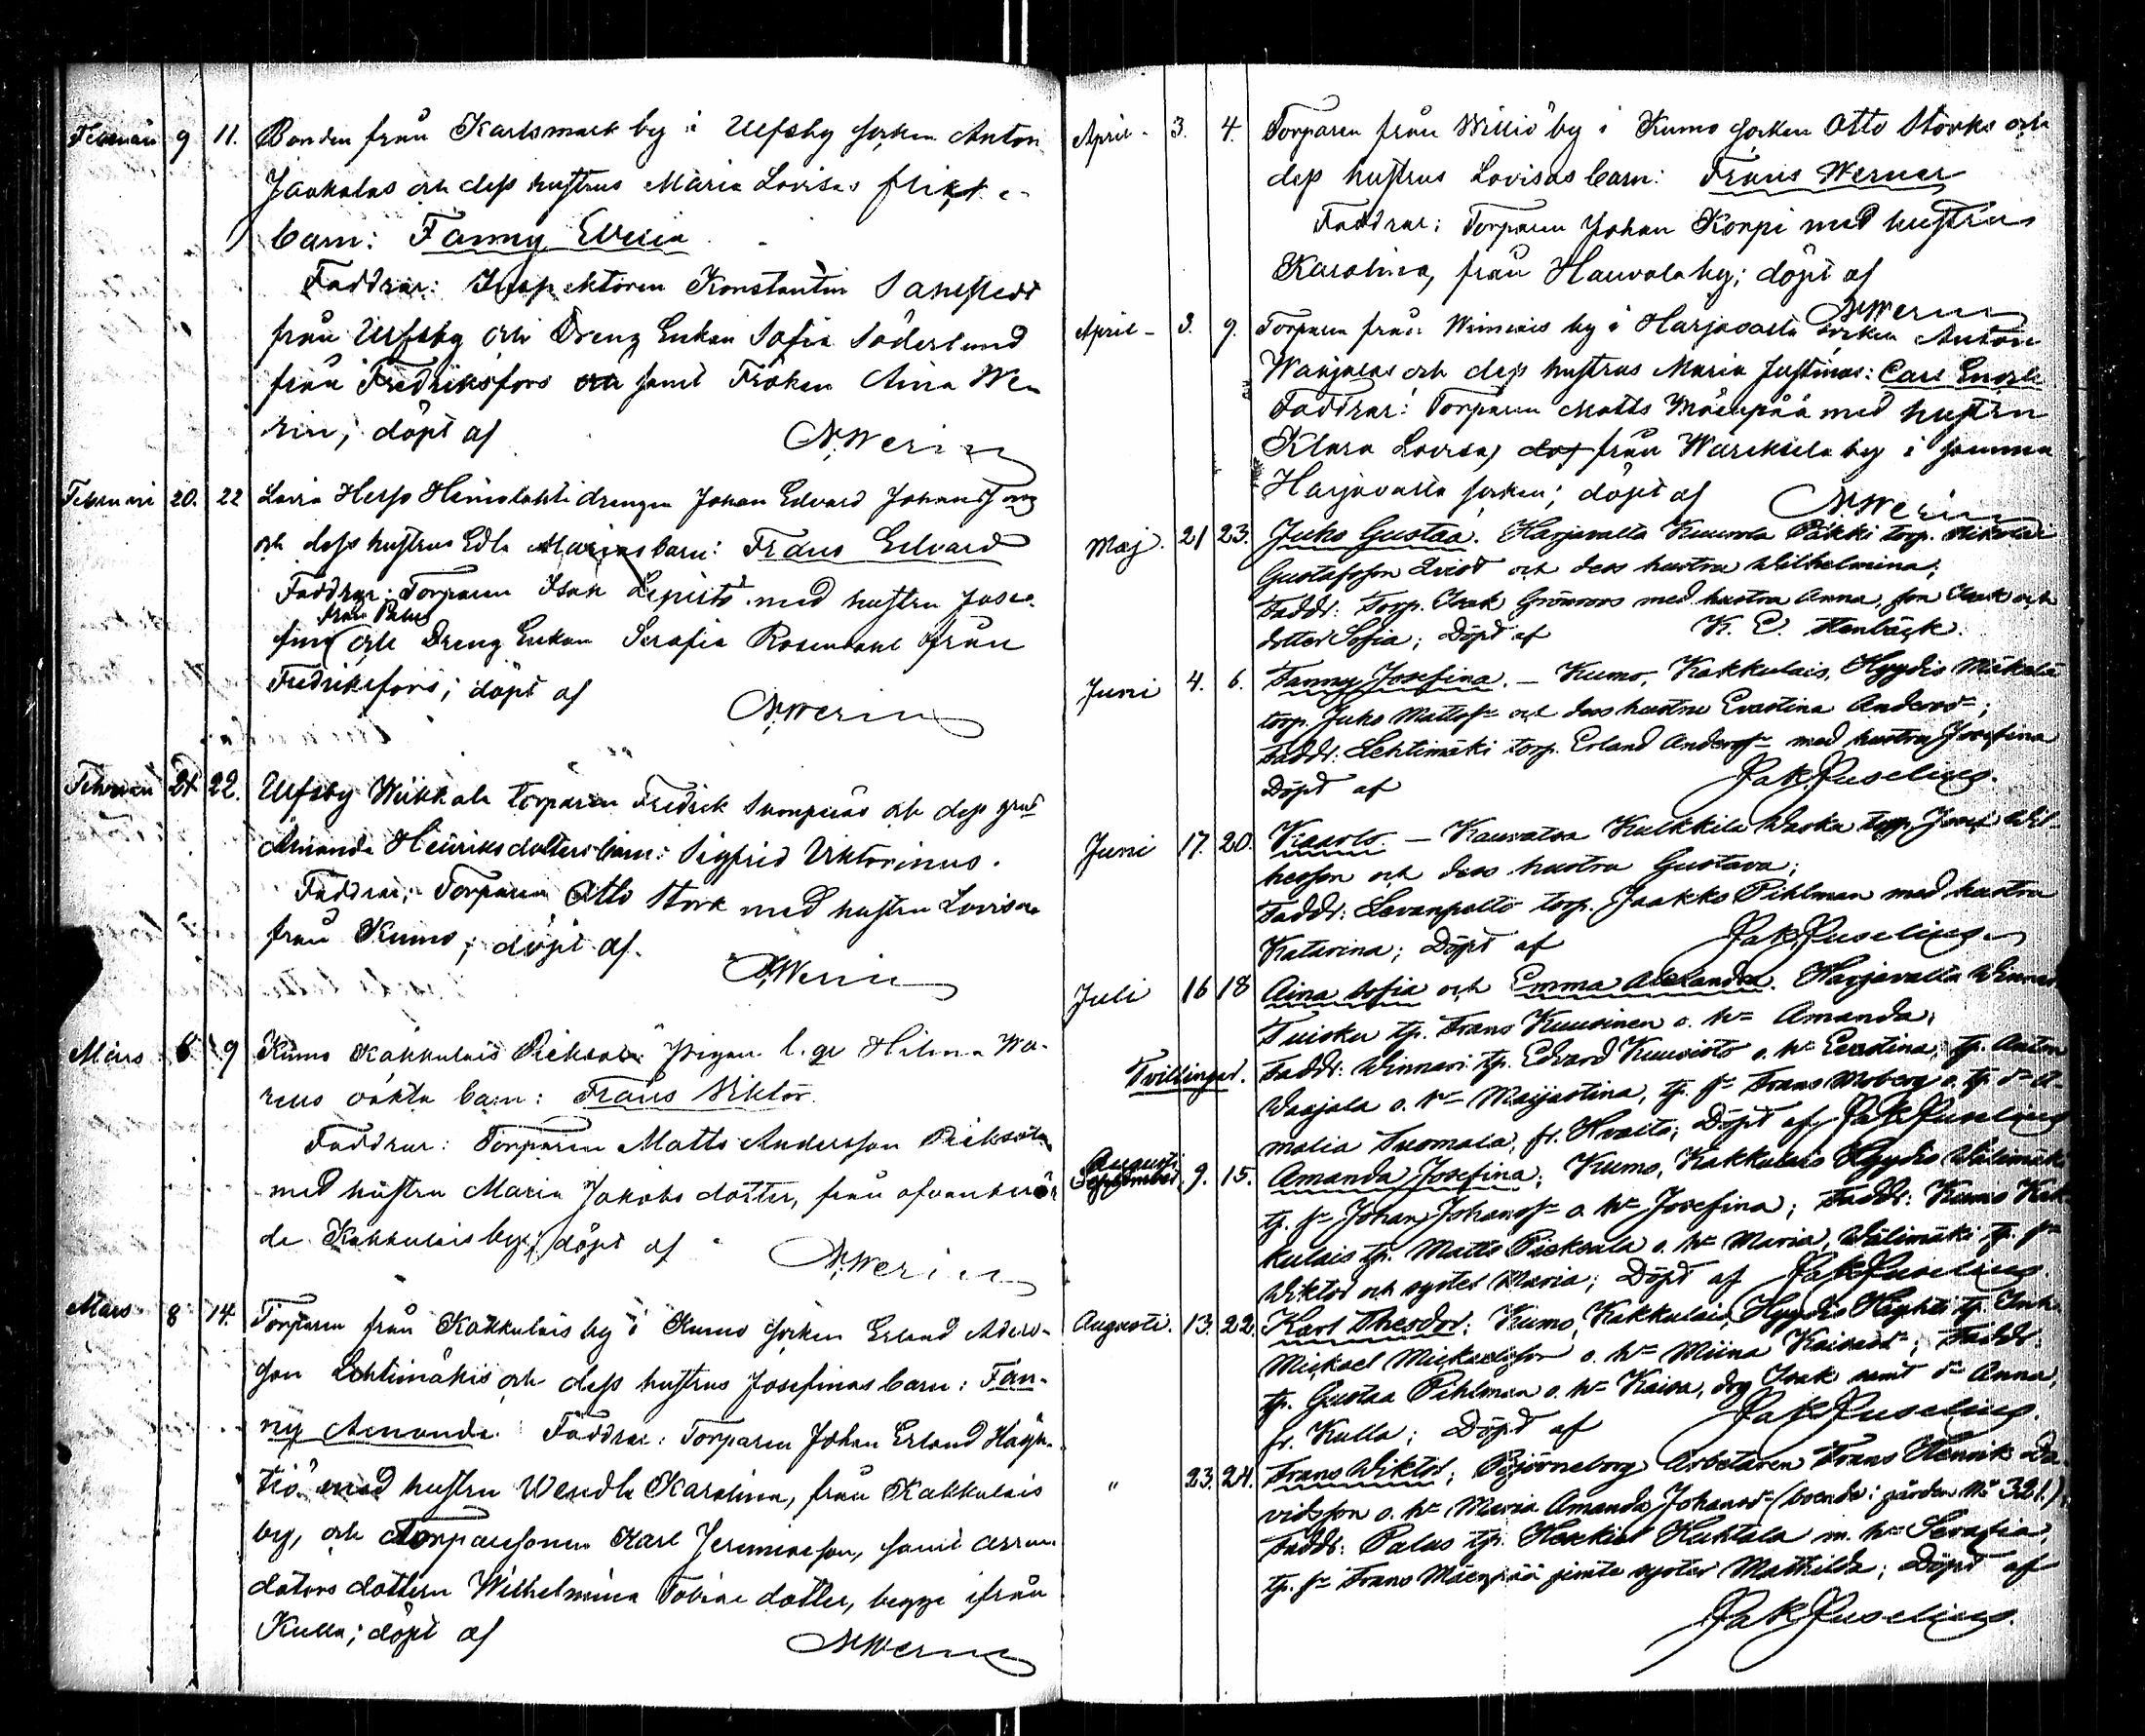 Februari 9 11. Bonden från Karlsmark by i Ulfsby socken Anton
Jaakolas och dess hustrus Maria Lovisas
barn: Fanny Evelia
Faddrar: Inspektoren Konstantin
från Ulfsby och Dreng Enkan Sofia Söderlund
från Fredriksfors samt Fröken Aina We-
rin; döpt af N. Werin
Februari 20. 22 Hinslahti drengen Johan Edvard
och dess hustrus Edla Marias barn: Frans Edvard
Faddrar: Torparen Isak Lepistö med hustru Jose-
från Palus
fina och Dreng Enkan Serafia Rosendahl från
Fredriksfors; döpt af N. Werin
Februari 21 22. Ulfsby Wiikkala torparen Fredrik och dess
Amanda Henriksdotters barn: Sigfrid Viktorinus.
Faddrar: Torparen Otto Stork med hustru Lovisa
från Kumo; döpt af N. Werin
Mars 6 9 Kumo Kakkulais Pieksala Pigan l. qv Hilma Wa-
reus oäkta barn: Frans Viktor.
Faddrar: Torparen Matts Andersson Pieksala
med hustru Maria Jakobsdotter, från ofvanberör-
de Kakkulais by; döpt af N. Werin
Mars 8 14. Torparen från Kakkulais by i Kumo socken Erland Anders-
son Lehtimäkis och dess hustrus Josefinas barn: Fan-
ny Amanda. Faddrar: Torparen Johan Erland Häyh-
tiö med hustru Wendla Karolina, från Kakkulais
by, och Torparesonen Karl Jeremiasson, samt arren-
dators dottern Wilhelmina Tobiae dotter, begge ifrån
Kulla; döpt af N. Werin
April 3. 4. Torparen från Williö by i Kumo socken Otto Storks och
dess hustrus Lovisas barn: Frans Werner
Faddrar: Torparen Johan Korpi med hustru
Karolina, från Hauvola by; döpt af
N. Werin
April 3. 9. Torparen från by i Harjavalta socken Anton
Waajalas och dess hustrus Maria Justinas: Carl
Faddrar: Torparen Matts Mäenpää med hustru
Klara Lovisa, från by i samma
Harjavalta socken; döpt af N. Werin
Maj. 21 23. Juho Gustaa. Harjavalta Pákki torp. Nikolai
Gustafsson Qvist och dess hustru Wilhelmina;
Faddr: Torp. Isak Grönroos med hustru Anna, son Isak och
dotter Sofia; Döpt af K. E. Stenbäck.
Juni 4. 6. Fanny Josefina. – Kumo, Kakkulais, Hyydis Mäkelä
torp. Juho Mattss. och dess hustru Evastina Andersd.;
Faddr: Lehtimäki torp. Erland Anderss. med hustru Josefina
Döpt af
Juni 17. 20. Kaarlo. – Kauvatsa Kulkkila Waska torp. Josef Wil-
hesson och dess hustru Gustava;
Faddr: Levanpelto torp. Jaakko Pihlman med hustru
Katarina; Döpt af
Juli 16 18 Aina Sofia och Emma Alexandra. Harjavalta
Tuisku tp. Frans Kuusinen o. h. Amanda;
Tvillingar. Faddr: Winnari tp. Edvard Kuusisto o. h. Evastina; tp. Anton
Waajala o. h. Maijastina, tp. s. Frans Moberg o. tp. d. A-
malia Tuomala, fr. Hvaito; Döpt af
Augusti
September 9. 15. Amanda Josefina; Kumo, Kakkulais Hyydis Wälimäki
tp. s. Johan Johanss. o. h. Josefina; Faddr: Kumo Kak-
kulais tp. Matts Pieksala o. h. Maria, Wälimäki tp. s.
Wiktor och syster Maria; Döpt af
Augusti. 13. 22. Karl Theodor; Kumo, Kakkulais, Hyydis Häyhtiö tp.
Mickael Mickaelsson o. h. Miina Kaisasd.; Faddr:
tp. Gustaa Pihlman o. h. Kaisa, drg Isak samt d. Anna,
fr. Kulla; Döpt af
" 23. 24. Frans Wiktor; Björneborg Arbetaren Frans Henrik Da-
vidsson o. h. Maria Amanda Johansd. (boende i gården No 321.);
Faddr: Palus tp. Heskiel Huhtala m. h. Serafia,
tp. s. Frans Mäenpää jemte syster Mathilda; Döpt af